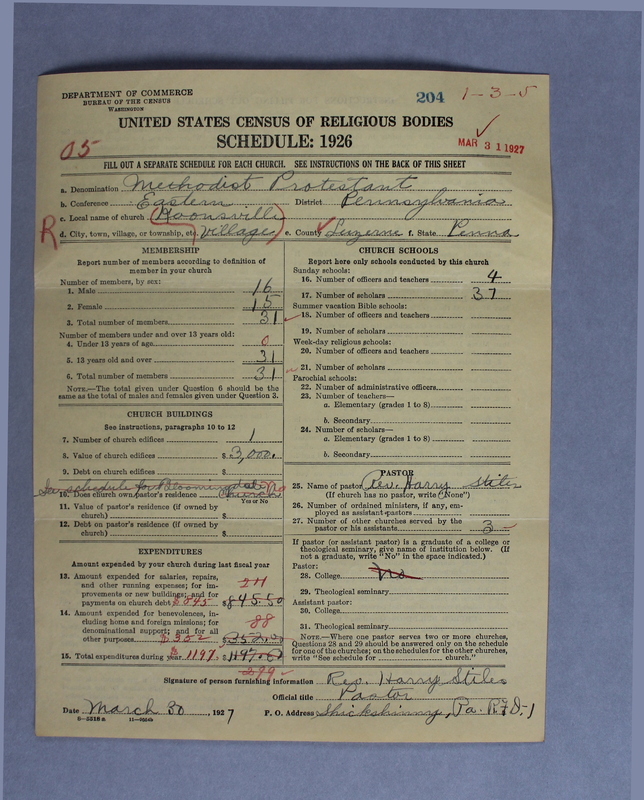 DEPARTMENT OF COMMERCE
BUREAU OF THE CENSUS
WASHINGTON
204 1-3-5
UNITED STATES CENSUS OF RELIGIOUS BODIES
SCHEDULE: 1926
05
MAR 31 1927
FILL OUT A SEPARATE SCHEDULE FOR EACH CHURCH. SEE INSTRUCTIONS ON THE BACK OF THIS SHEET
a. Denomination Methodist Protestant
b. Conference Eastern District Pennsylvania
c. Local name of church (Koonsville
R d. City, town, village, or township, etc. Village) e. County Luzerne f. State Penna
MEMBERSHIP
Report number of members according to definition of
member in your church
Number of members, by sex:
1. Male 16
2. Female 15
3. Total number of members 31
Number of members under and over 13 years old:
4. Under 13 years of age 0
5. 13 years old and over 31
6. Total number of members 31
NOTE.—The total given under Question 6 should be
the same as the total of males and females given under Question 3.
CHURCH BUILDINGS
See instructions, paragraphs 10 to 12
7. Number of church edifices 1
8. Value of church edifices $ 3,000.
9. Debt on church edifices $
See schedule for Bloomingdale no
10. Does church own pastor's residence Church
Yes or No
11. Value of pastor's residence (if owned by
church) $
12. Debt on pastor's residence (if owned by
church) $
EXPENDITURES
Amount expended by your church during last fiscal year
13. Amount expended for salaries, repairs,
and other running expenses; for im-
provements or new buildings; and for
payments on church debt $845 $845.50
211
14. Amount expended for benevolences, in-
cluding home and foreign missions; for
denominational support; and for all
other purposes $352
88
15. Total expenditures during year $1197
299
CHURCH SCHOOLS
Report here only schools conducted by this church
Sunday schools:
16. Number of officers and teachers 4
17. Number of scholars 37
Summer vacation Bible schools:
18. Number of officers and teachers
19. Number of scholars
Week-day religious schools:
20. Number of officers and teachers
21. Number of scholars
Parochial schools:
22. Number of administrative officers
23. Number of teachers—
a. Elementary (grades 1 to 8)
b. Secondary
24. Number of scholars—
a. Elementary (grades 1 to 8)
b. Secondary
PASTOR
25. Name of pastor Rev. Harry Stiles
(If church has no pastor, write "None")
26. Number of ordained ministers, if any, em-
ployed as assistant pastors
27. Number of other churches served by the
pastor or his assistants 3
If pastor (or assistant pastor) is a graduate of a college or
theological seminary, give name of institution below. (If
not a graduate, write "No" in the space indicated.)
Pastor:
28. College No
29. Theological seminary
Assistant pastor:
30. College
31. Theological seminary
NOTE.—Where one pastor serves two or more churches,
Questions 28 and 29 should be answered only on the schedule
for one of the churches; on the schedules for the other churches,
write "See schedule for church."
Signature of person furnishing information Rev. Harry Stiles
Official title Pastor
Date March 30, 1927 P. O. Address Shickshinny, Pa. R.F.D-1
8-5318 a